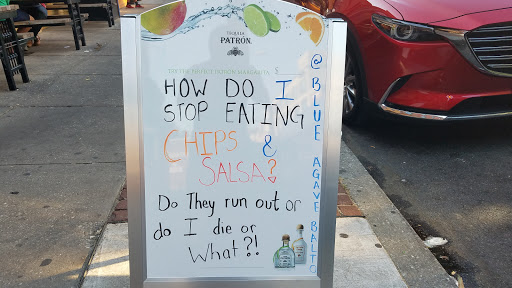 TEQUILA
PATRÓN
HOW DO I
STOP EATING
CHIPS &
SALSA?
Do They run out or
do I die or
What?!
@ BLUE AGAVE BALTO